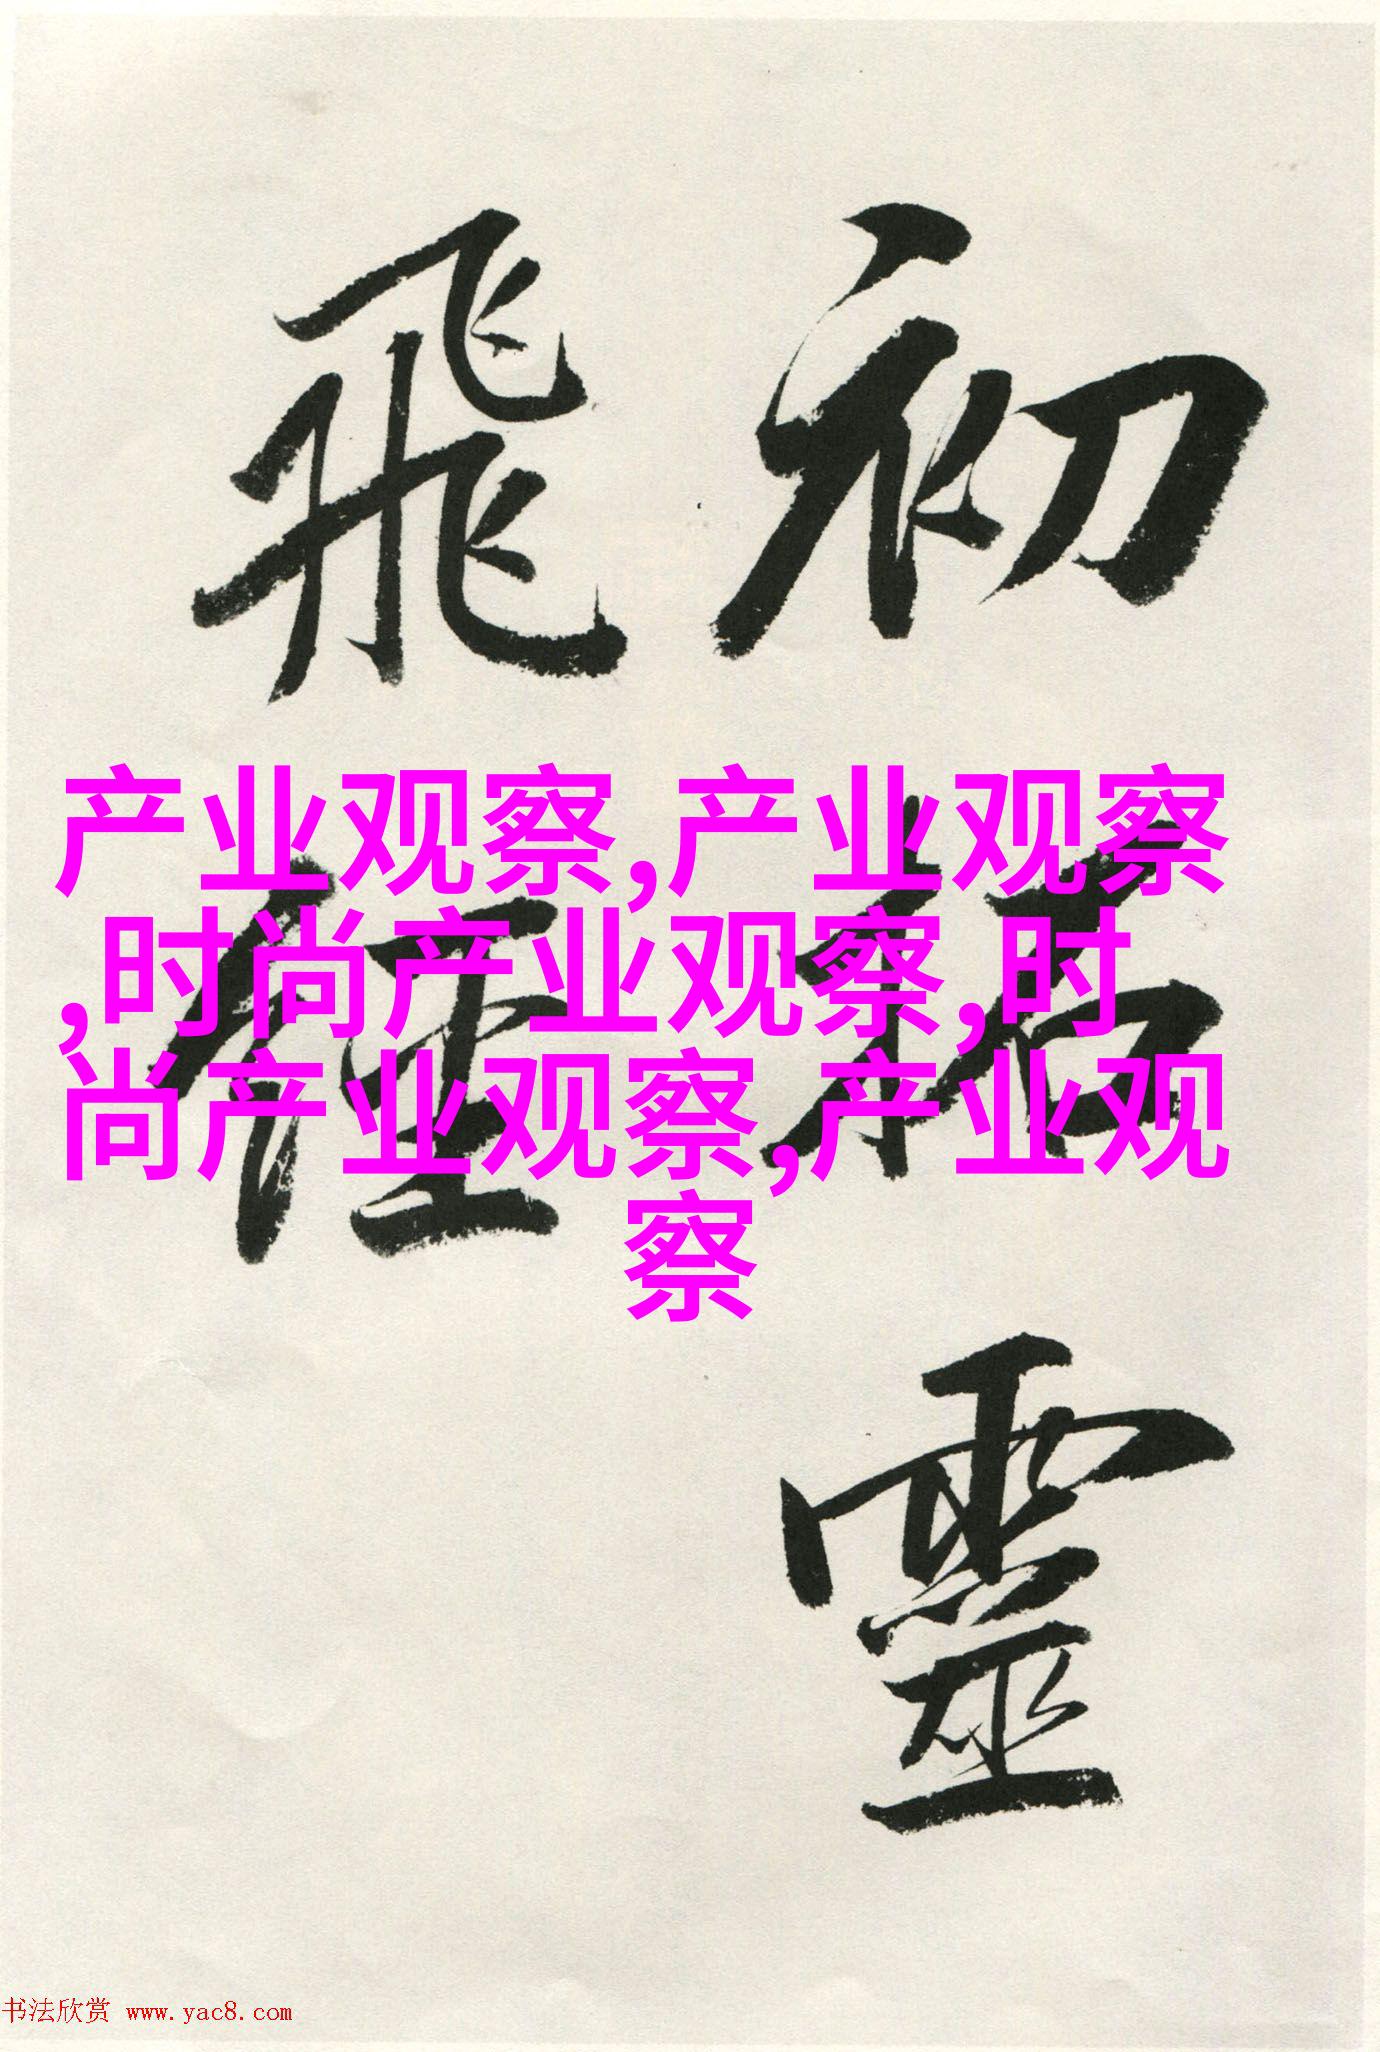 初拓靈
飛經
产业观察,产业观察
,时尚产业观察,时
尚产业观察,产业观
察
书法欣赏 www.yac8.com